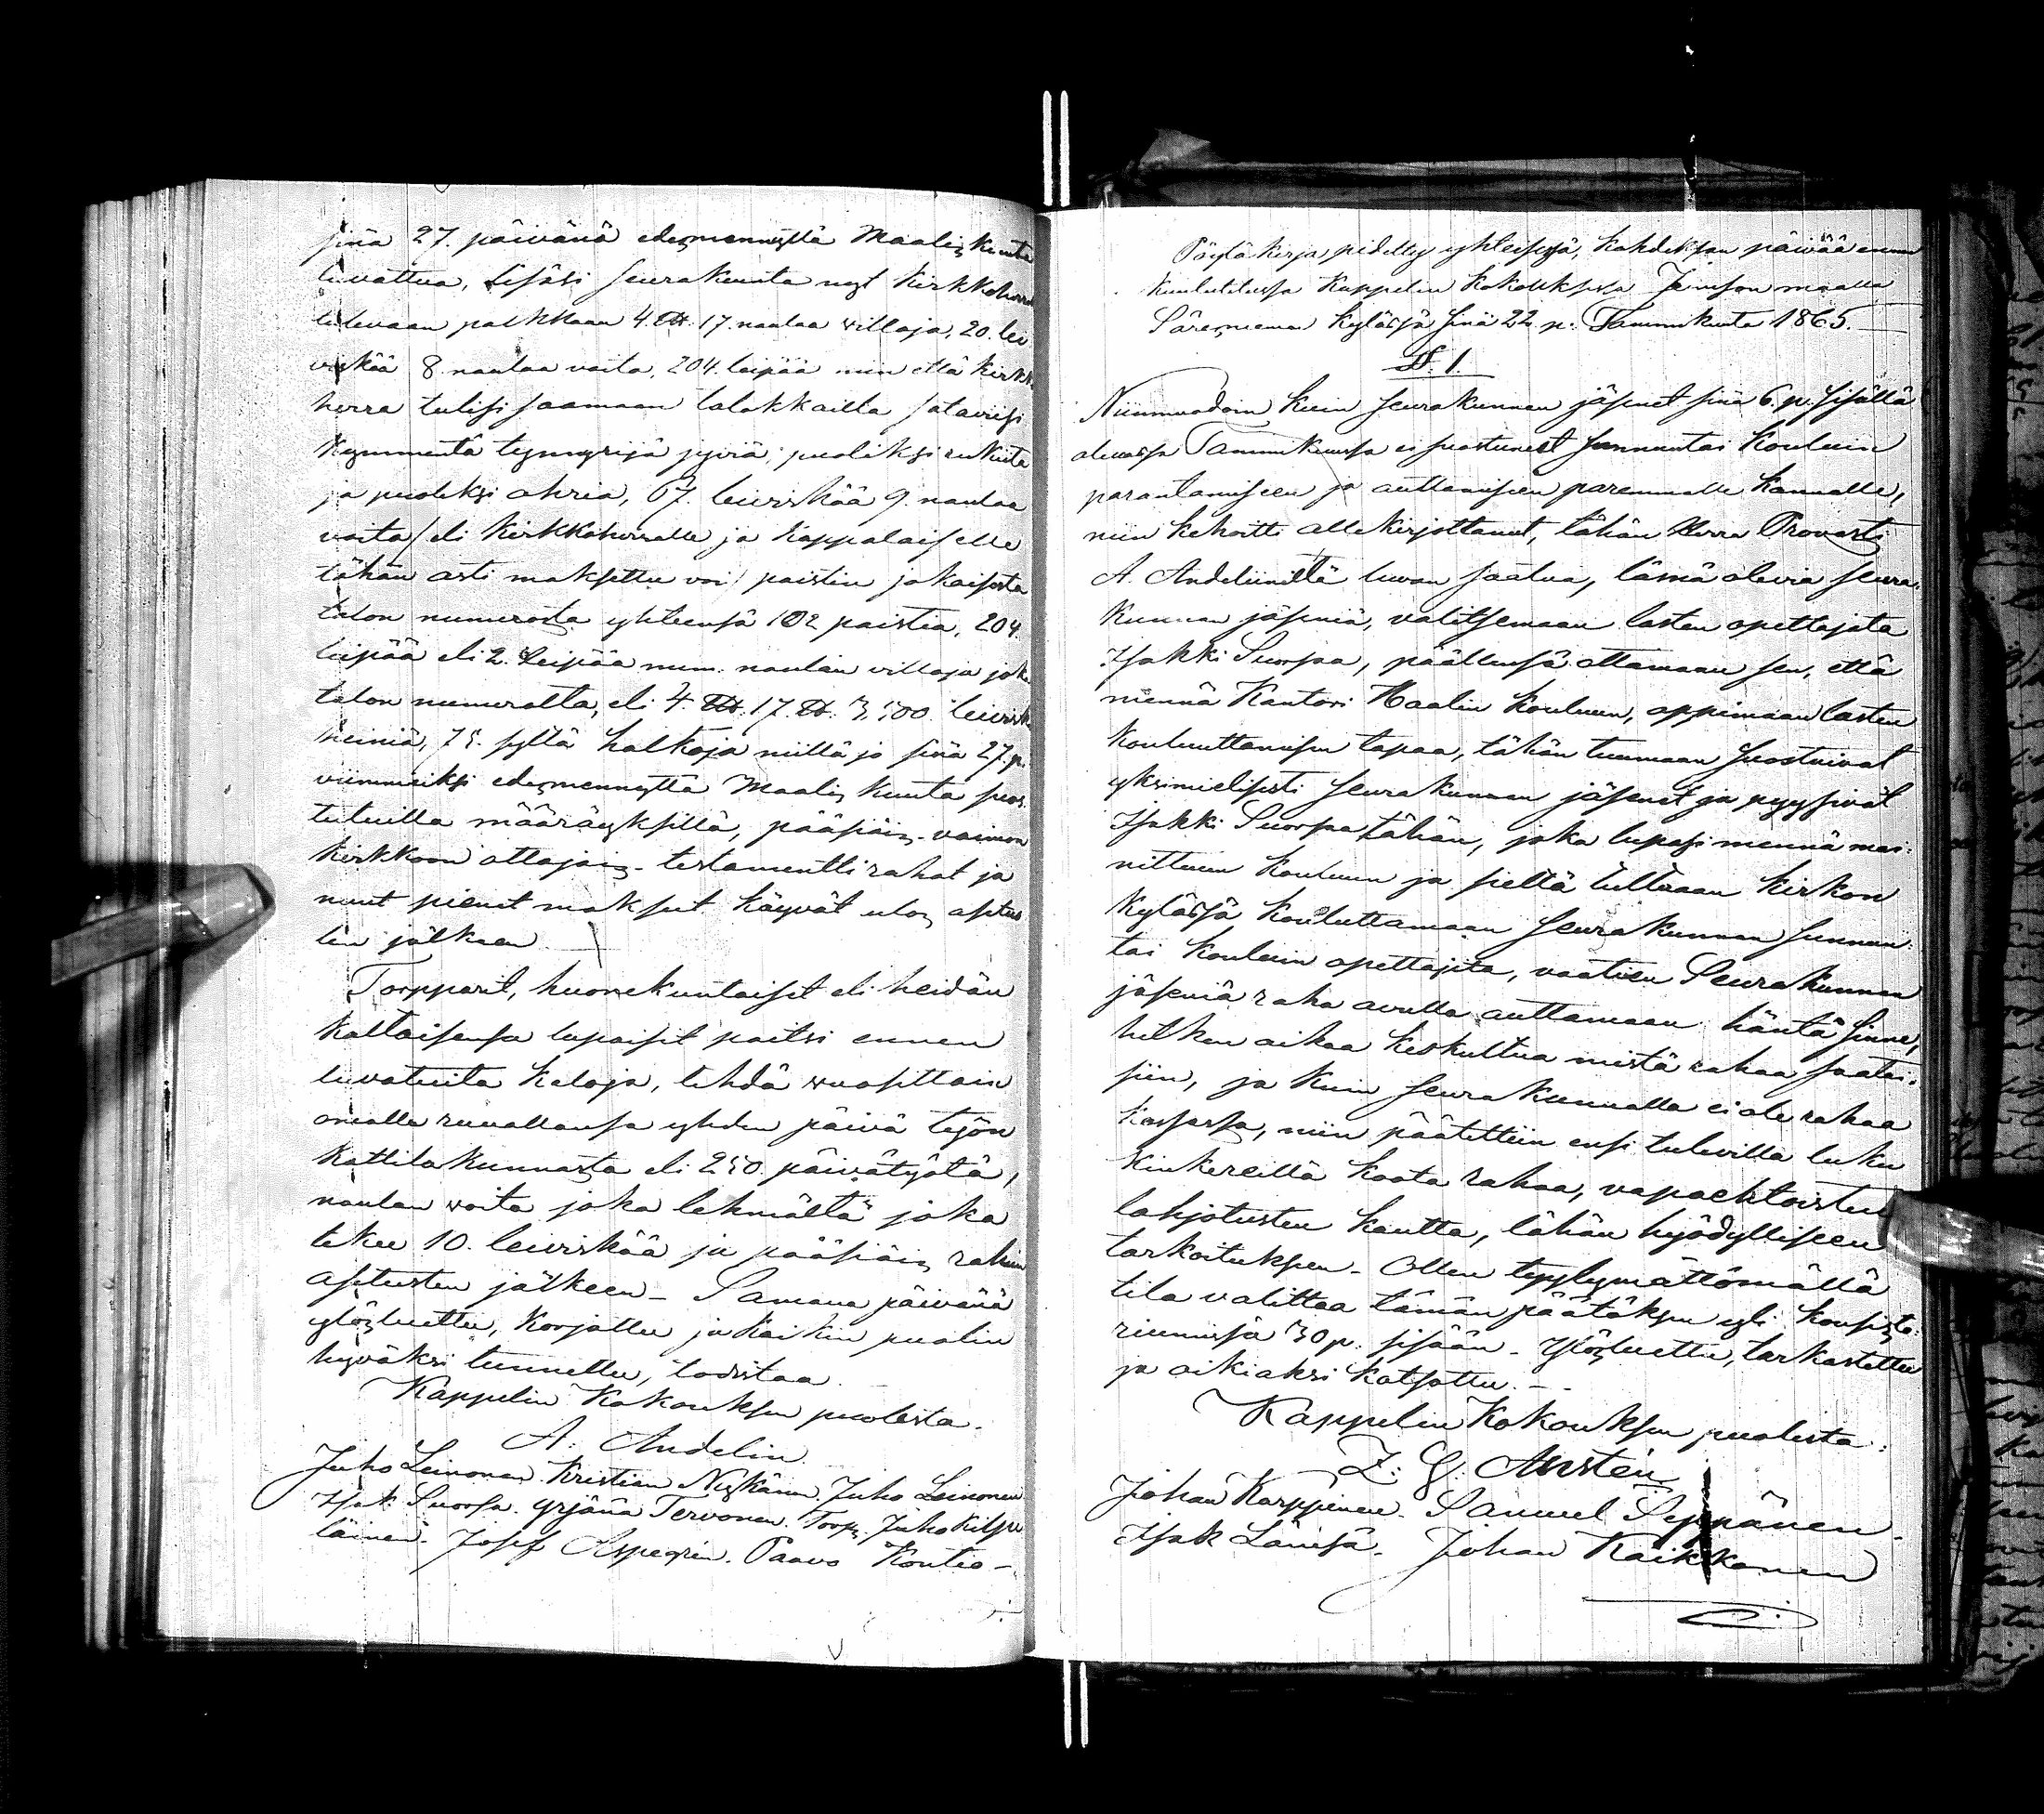 sinä 27. päivänä edesmennyttä Maalis kuuta
luvattua, lisäsi seurakunta nyt kirkkoherra
tulevaan palkkaan 4. ℔. 17. naulaa villoja, 20. lei
viskää 8 naulaa voita, 204. leipää niin että kirkko
herra tulisi saamaan talokkailta sataviisi
kymmentä tynnyrijä jyviä, puoliksi rukiita
ja puoleksi ohria, 67. leiviskää 9. naulaa
voita eli kirkkoherralle ja kappalaiselle
tähän asti maksettu voi paistin jokaisesta
talon numerosta yhteensä 102 paistia, 204.
leipää eli 2. leipää num. naulan villoja joka
talon numerolta, eli 4. ℔. 17. ℔. 3,500. leivisk
heiniä, 75. syltä halkoja niillä jo sinä 27. p.
viimmeiksi edesmennyttä Maalis kuuta suos
tutuilla määräyksillä, pääsiäis-vaimon
kirkkoon ottajais-testamentti rahat ja
muut pienet maksut käyvät ulos asetus
ten jälkeen
Torpparit, huonekuntaiset eli heidän
kaltaisensa lupaisit paitsi ennen
luvatuita kaloja, tehdä vuosittain
omalla ruuallansa yhden päivä työn
kattilakunnasta eli 250. päivätyötä,
naulan voita joka lehmältä joka
tekee 10. leiviskää ja pääsiäis rahan
asetusten jälkeen - Samana päivänä
ylösluettu, korjattu ja kaikin puolin
hyväksi tunnettu, todistaa.
Kappelin Kokouksen puolesta.
A. Andelin.
Juho Leinonen. Kristian Niskanen. Juho Leinonen
Isak Suorsa. Yrjänä Tervonen. Torp. Juho Kilpe
läinen. Josef Aspegrén. Paavo Kontio -
Pöytäkirja, pidetty yhteisessä, kahdeksan päivää ennen
kuulutetussa Kappelin Kokouksessa
Säresniemen kylässä sinä 22 p: Tammikuuta 1865.
§. 1.
Niinmuodoin kuin seurakunnan jäsenet sinä 6. p. sisällä
olevassa Tammikuussa ei suostuneet sunnuntai kouluin
parantamiseen ja auttamiseen paremmalle kannalle,
niin kehoitti allekirjottanut, tähän Herra Provasti
A. Andeliinilta luvan saatua, läsnä olevia seura-
kunnan jäseniä, valitsemaan lasten opettajata
Isakki Suorsaa, päällensä ottamaan sen, että
mennä Kantori Haalin kouluun, oppimaan lasten
kouluuttamisen tapaa, tähän tuumaan suostuivat
yksimielisesti seurakunnan jäsenet ja pyysivät
Isakki Suorsaa tähän, joka lupasi mennä mai-
nittuun kouluun ja sieltä tultuaan kirkon
kylässä kouluttamaan seurakunnan sunnun
tai kouluin opettajita, vaatien Seurakunnan
jäseniä raha avulla auttamaan häntä sinne,
hetken aikaa keskuteltua mistä rahaa saatai-
siin, ja kuin seurakunnalla ei ole rahaa
kassassa, niin päätettiin ensi tulevilla luku
kinkereillä koota rahaa, vapaehtoisten
lahjotusten kautta, tähän hyödylliseen
tarkoitukseen - Ollen tyytymättömällä
tila valittaa tämän päätöksen yli Konsisto-
riumissa 30 p. sisään - Ylösluettu, tarkastettu
ja oikiaksi katsottu. -
Kappelin Kokouksen puolesta.
Z. G. Ansten
Johan Karppinen. Samuel Seppänen.
Isak Länisä. Johan Kaikkonen